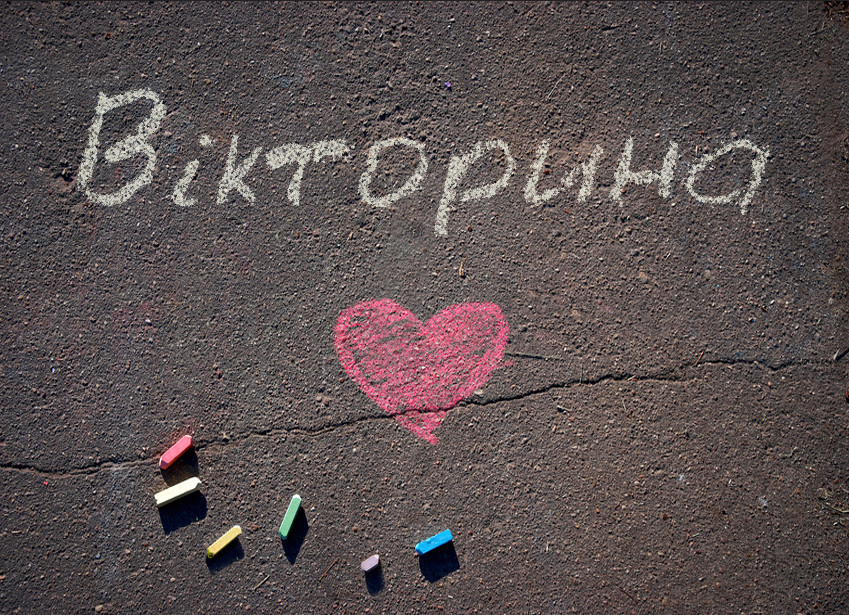 Вікторина